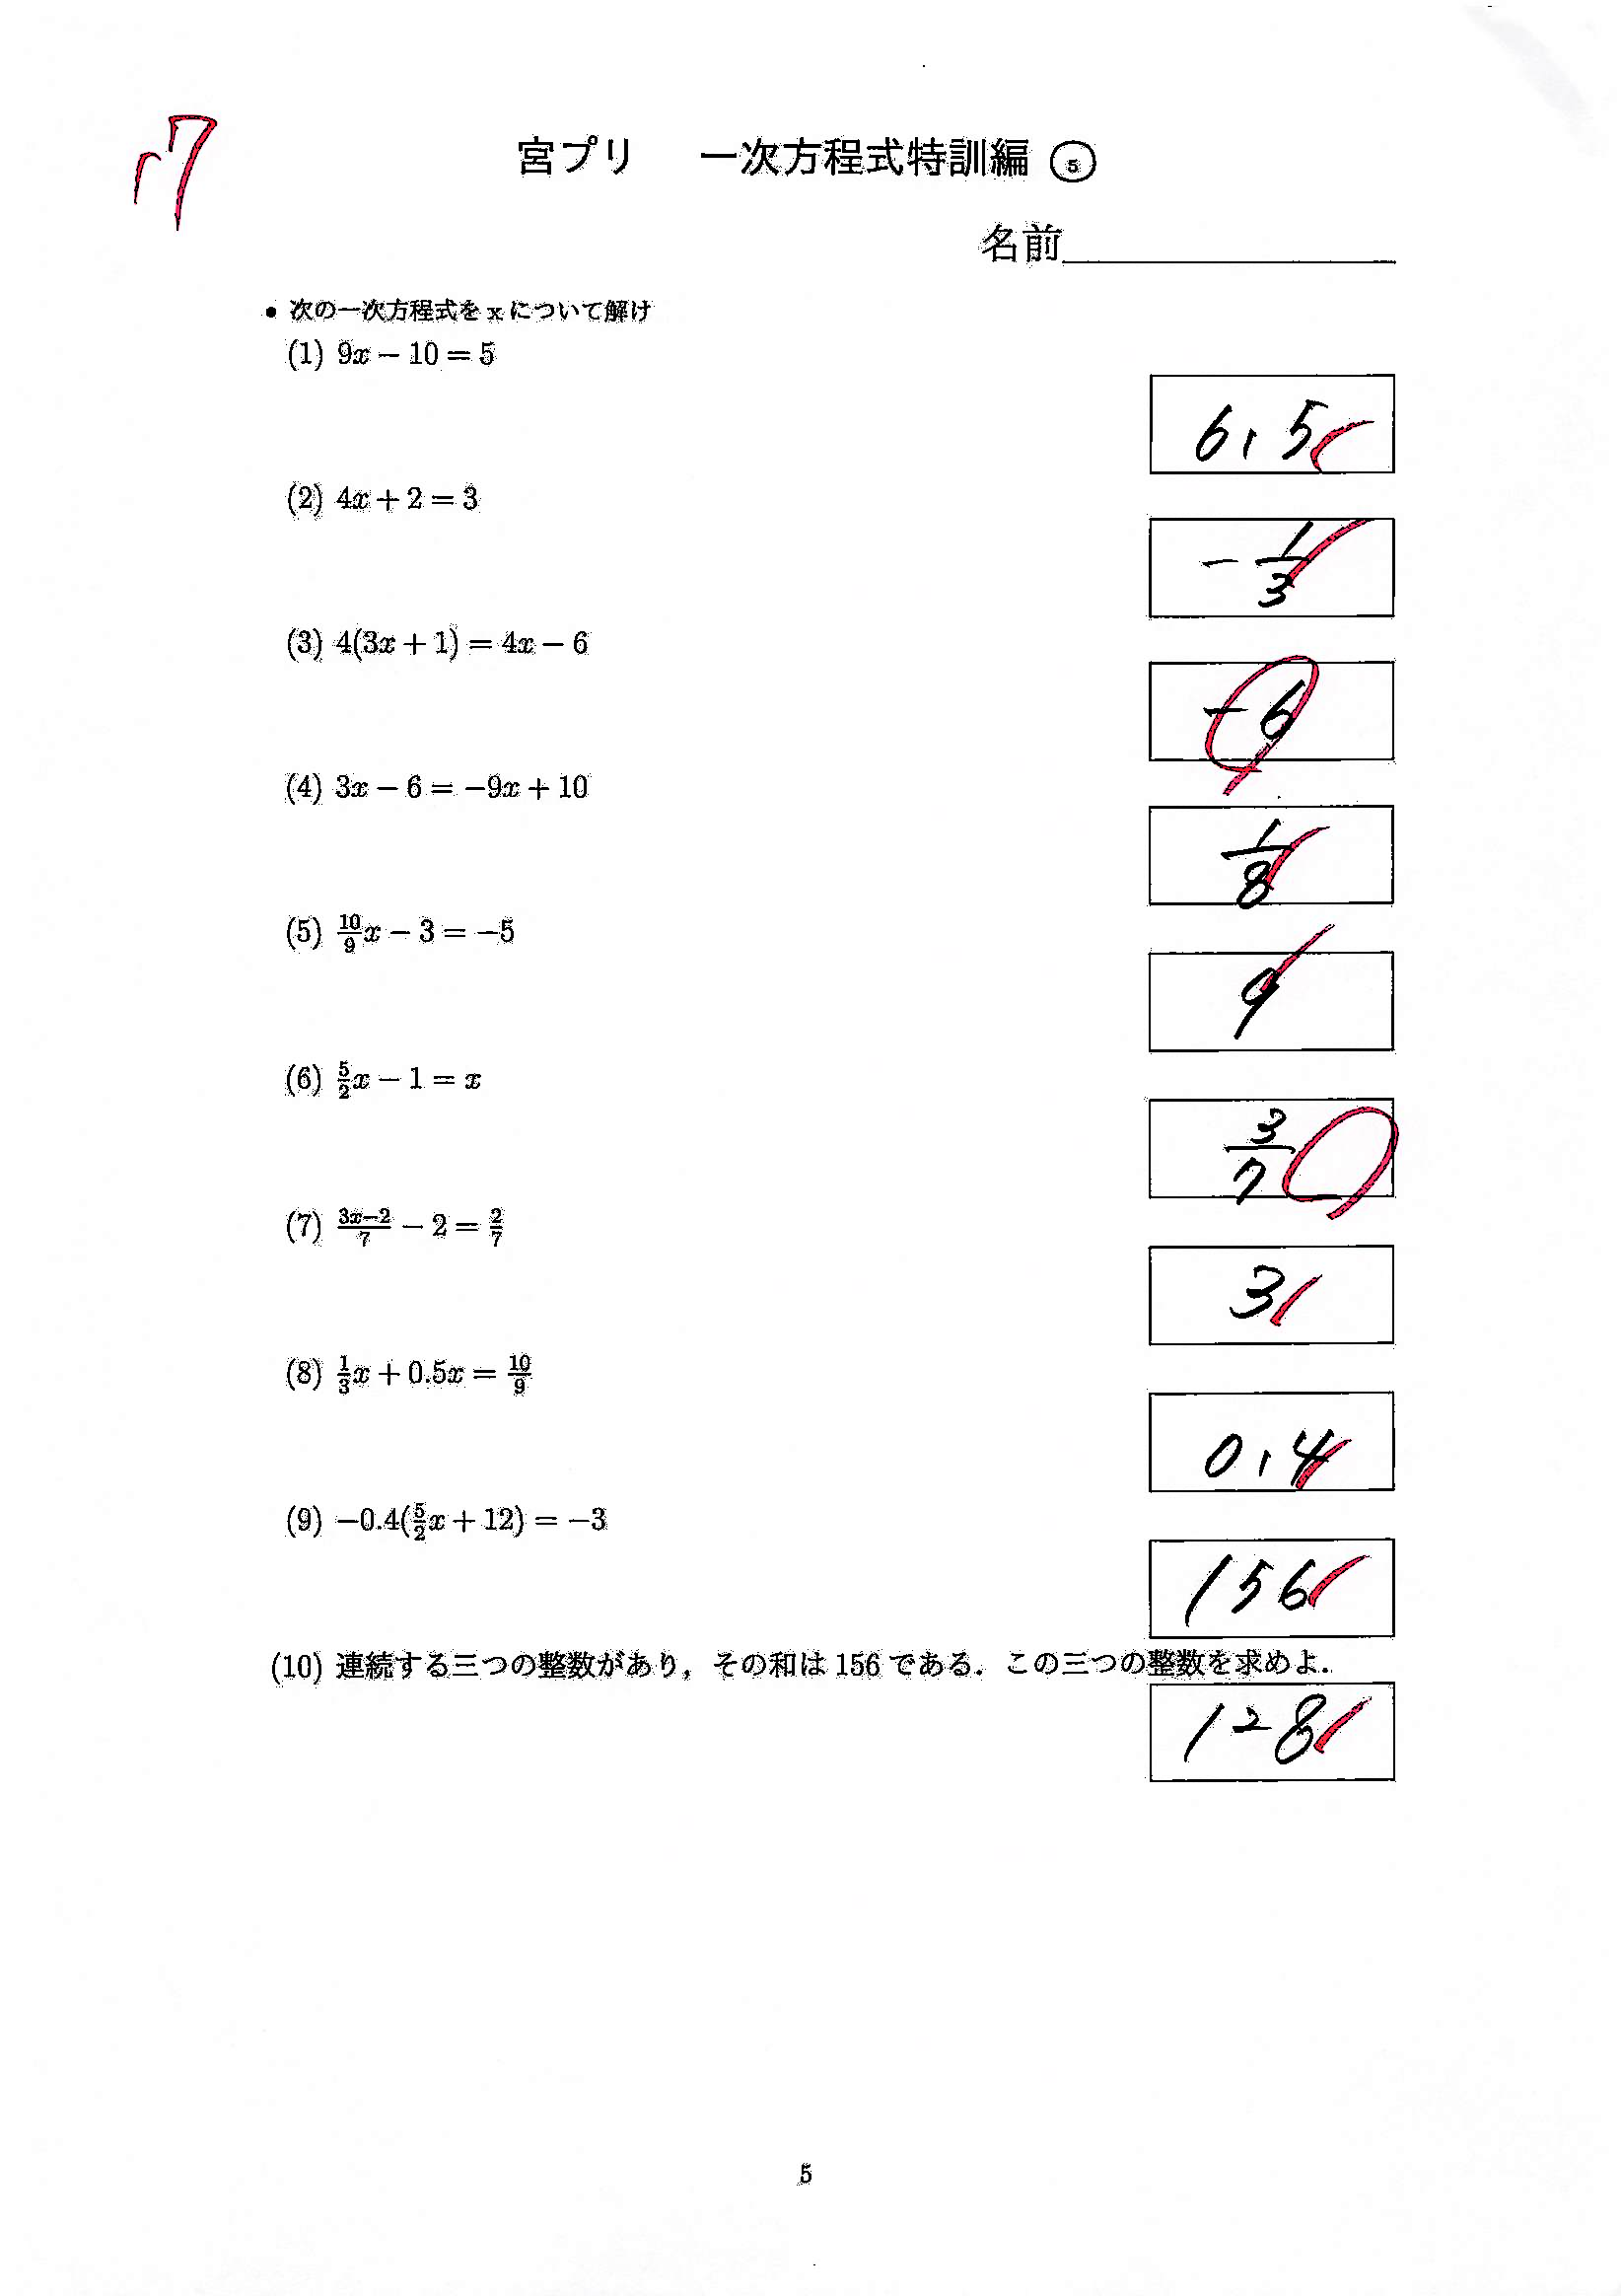 宮プリ 一次方程式特訓編 ⑤
名前
• 次の一次方程式を x について解け
(1) 9x − 10 = 5
6,5
(2) 4x + 2 = 3
−1/3
(3) 4(3x + 1) = 4x − 6
−6
(4) 3x − 6 = −9x + 10
1/8
(5) 10/9x − 3 = −5
9
(6) 5/2x − 1 = x
3/7
(7) (3x−2)/7 − 2 = 2/7
3
(8) 1/3x + 0.5x = 10/9
0,4
(9) −0.4(5/2x + 12) = −3
156
(10) 連続する三つの整数があり，その和は 156 である．この三つの整数を求めよ．
128
5